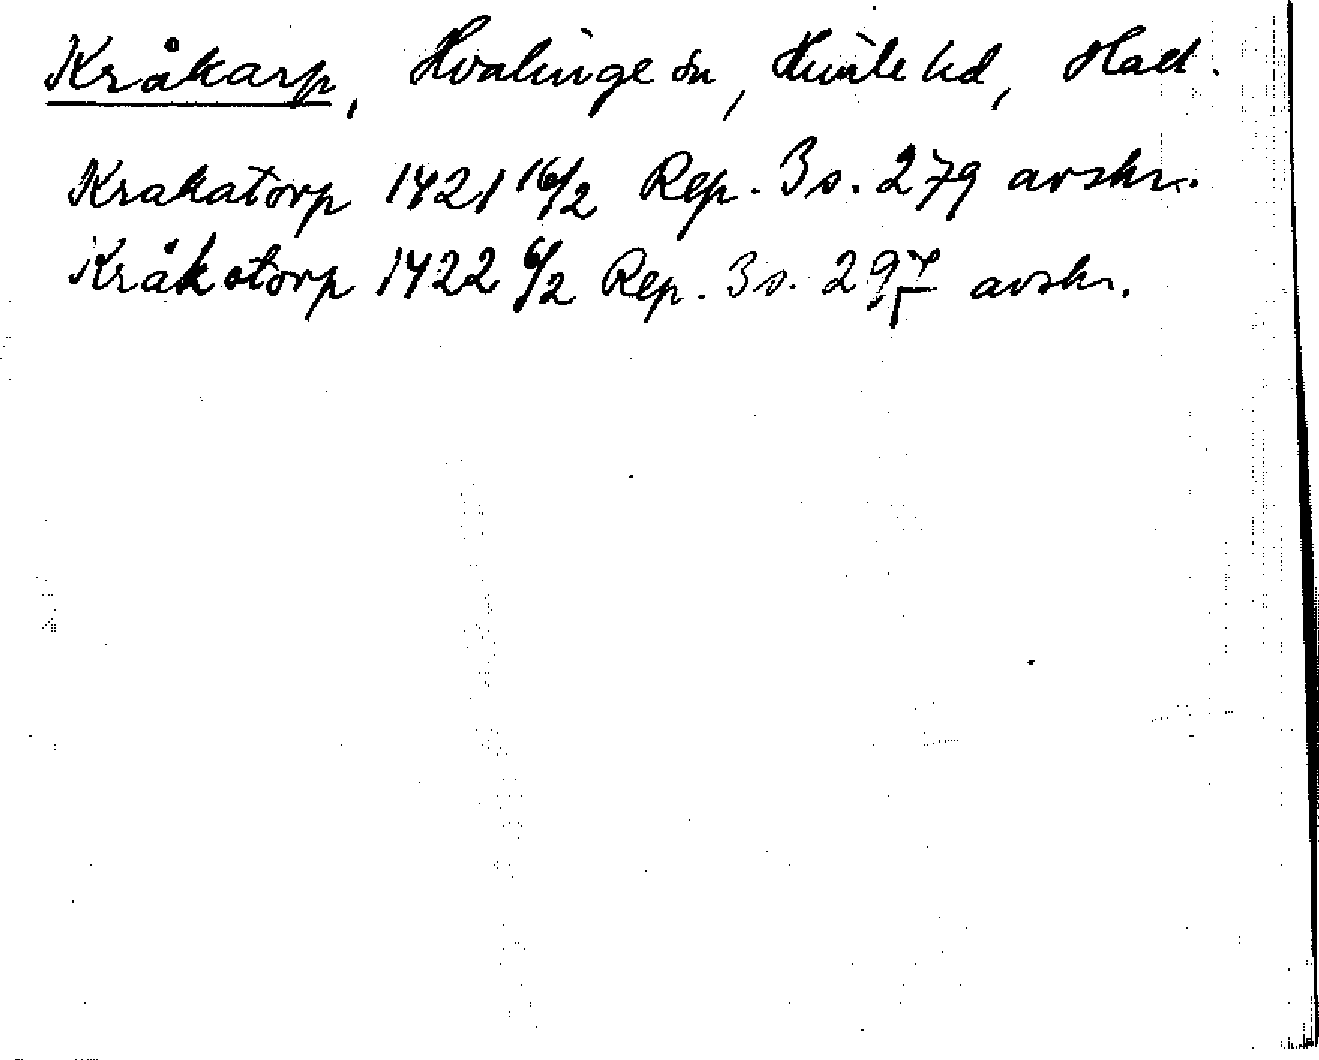 Kråkarp, Hvalinge sn, Himle hd, Hall.
Krakatorp 1421 16/2 Rep. 3 s. 279 avskr.
Kråkotorp 1422 6/2 Rep. 3 s. 297 avskr.